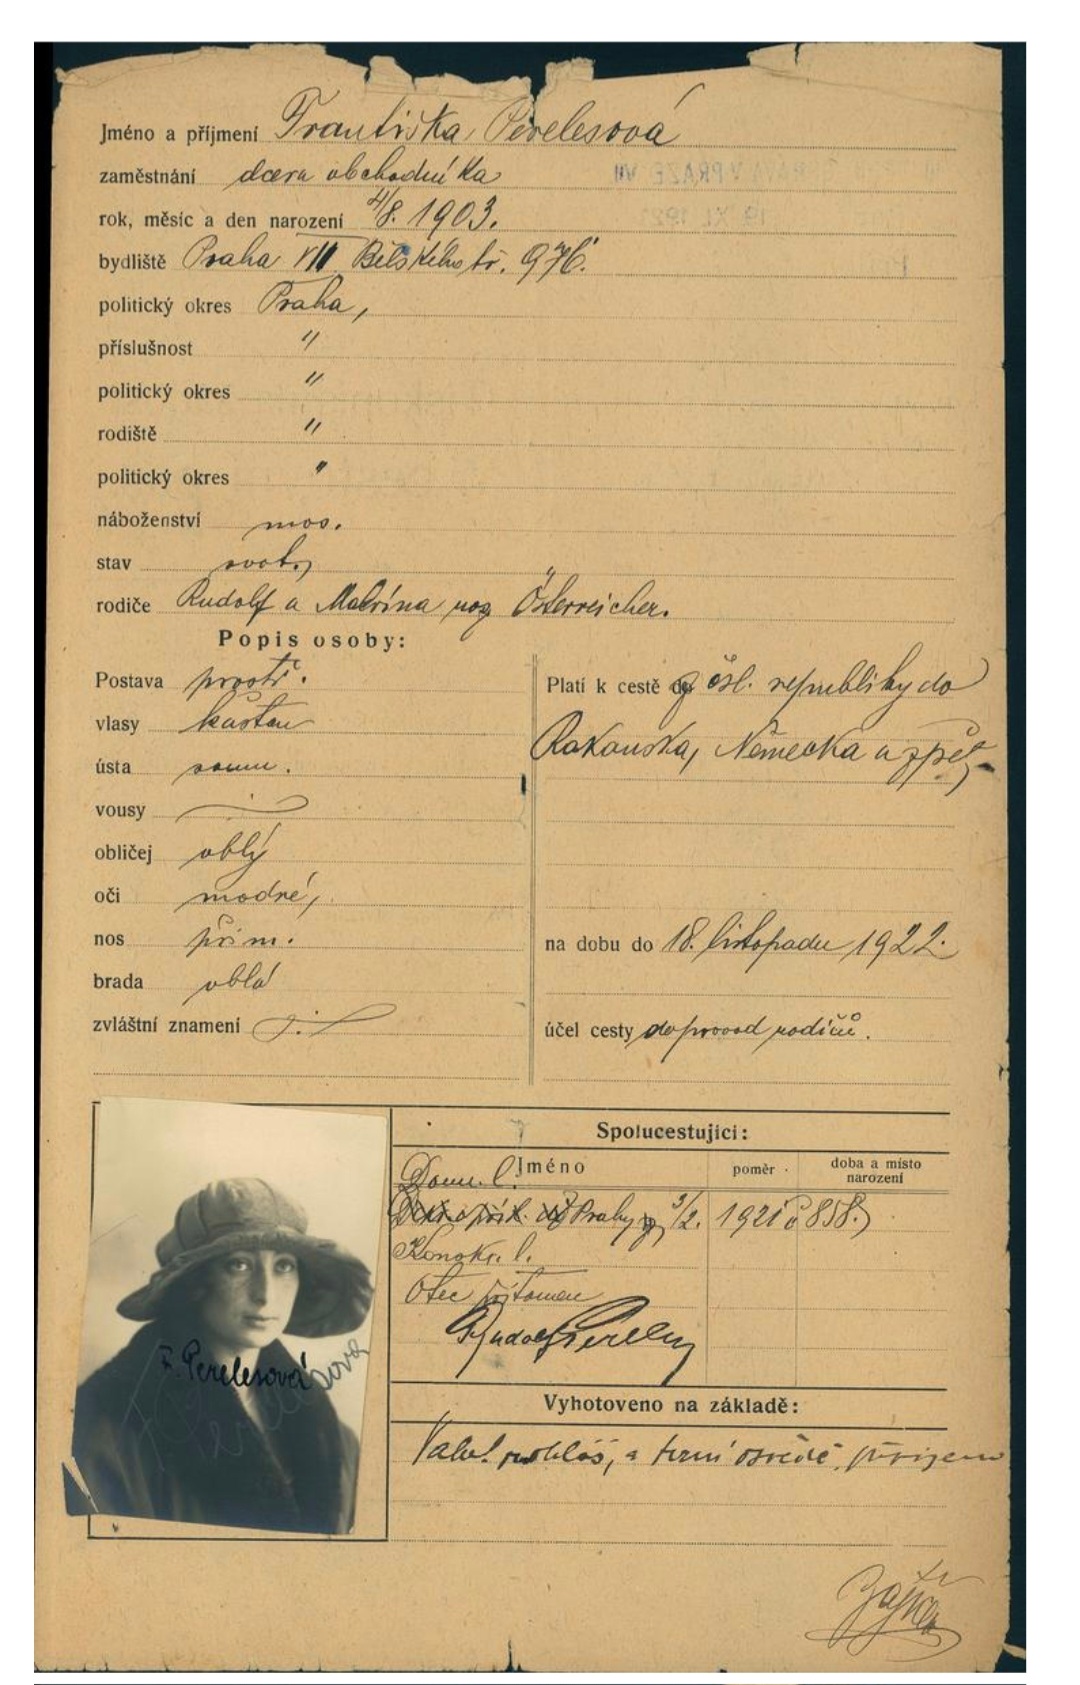 Jméno a příjmení Františka Perelesová
zaměstnání dcera obchodníka
rok, měsíc a den narození 4/8. 1903.
bydliště Praha VII Bělského tř. 976.
politický okres Praha,
příslušnost "
politický okres "
rodiště "
politický okres "
náboženství mos.
stav svob.,
rodiče Rudolf a Malvína roz Österreicher.
Popis osoby:
Postava prostř.
vlasy kaštan
ústa soum.
vousy
obličej oblý
oči modré,
nos přim.
brada oblá
zvláštní znamení
Platí k cestě z čsl. republiky do
Rakouska, Německa a zpět
na dobu do 18. listopadu 1922.
účel cesty doprovod rodičů.
F. Perelesová
Spolucestující:
Jméno poměr doba a místo
narození
Dom. l.
Prahy 3/2. 1921 č 858.)
Konskr. l.
Otec přítomen
Rudolf Pereles
Vyhotoveno na základě:
a